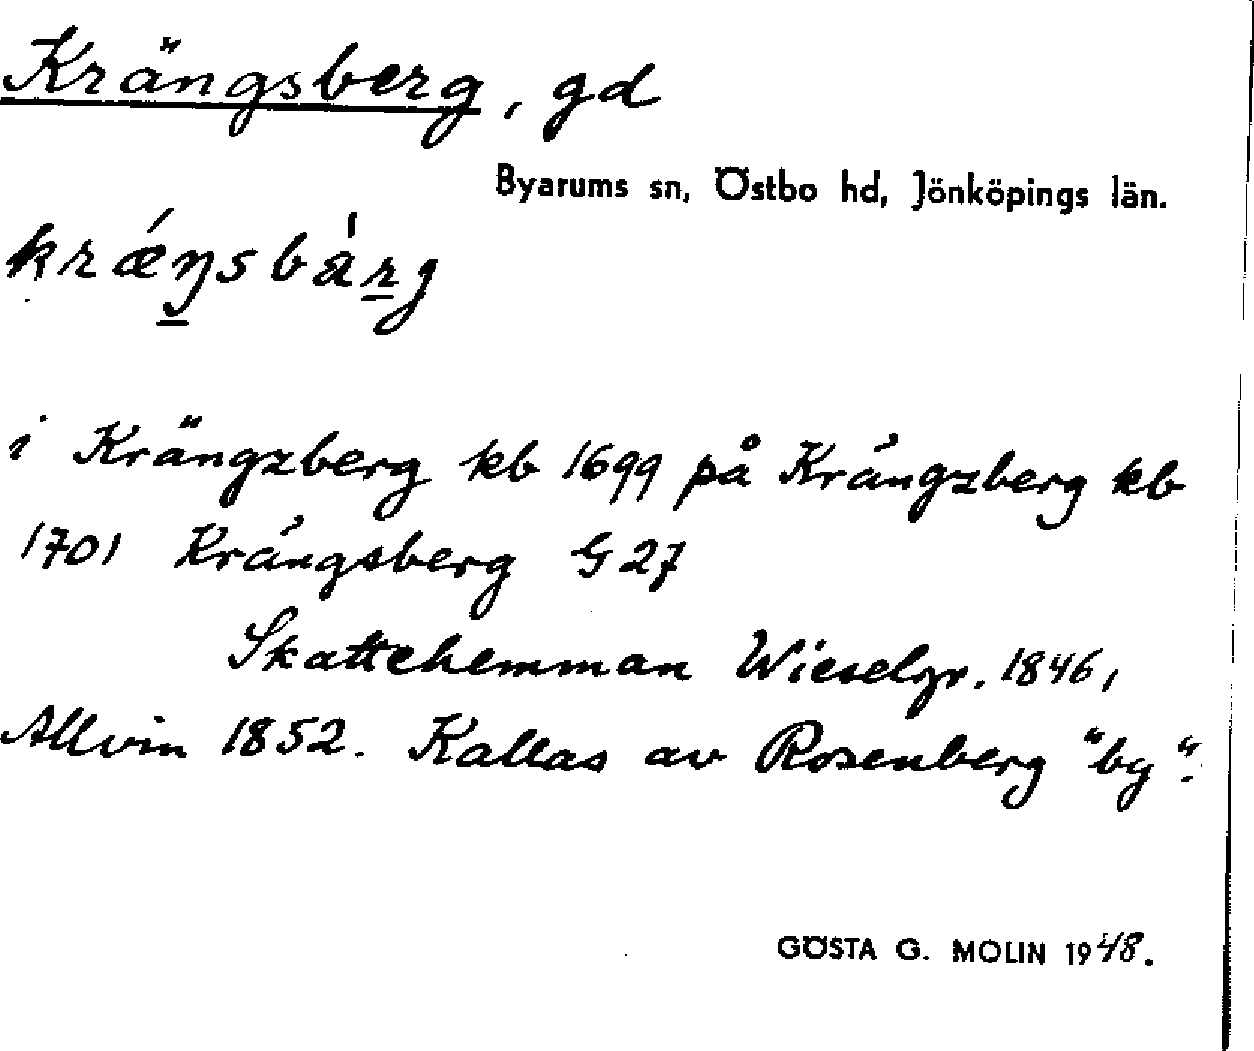 Krängsberg, gd
Byarums sn, Östbo hd, Jönköpings län.
krǽŋsbàrg
i Krängzberg kb 1699 på Krángzberg kb
1701 Krángsberg G 27
Skattehemman Wieselgr. 1846,
Allvin 1852. Kallas av Rosenberg "by".
GÖSTA G. MOLIN 1948.